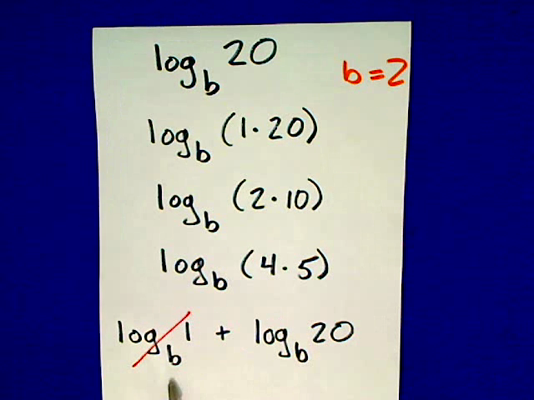 log_b 20
b = 2
log_b (1·20)
log_b (2·10)
log_b (4·5)
log_b 1 + log_b 20